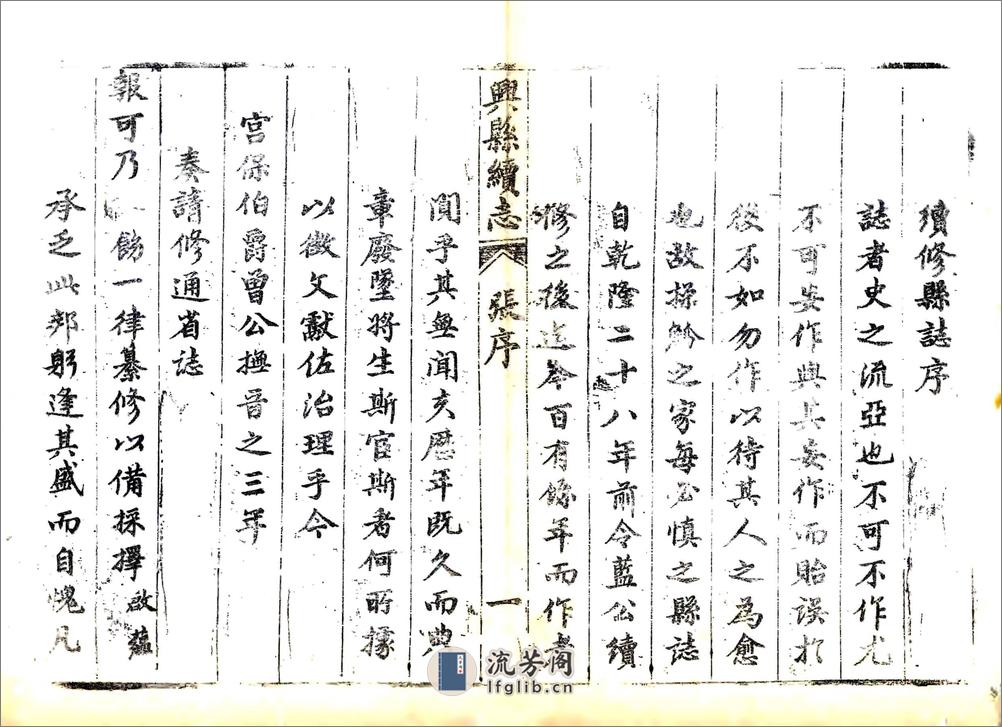 續修縣誌序
誌者史之流亞也不可不作尤
不可妄作與其妄作而貽誤於
後不如勿作以待其人之為愈
也故操觚之家每必慎之縣誌
自乾隆二十八年前令藍公續
修之後迄今百有餘年而作者
興縣續志 張序 一
閴乎其無聞矣歷年既久而典
章廢墜將生斯官斯者何所據
以徵文獻佐治理乎今
宮保伯爵曾公撫晉之三年
奏請修通省誌
報可乃 飭一律纂修以備採擇啟蘊
承乏此邦躬逢其盛而自愧凡
流芳阁
lfglib.cn